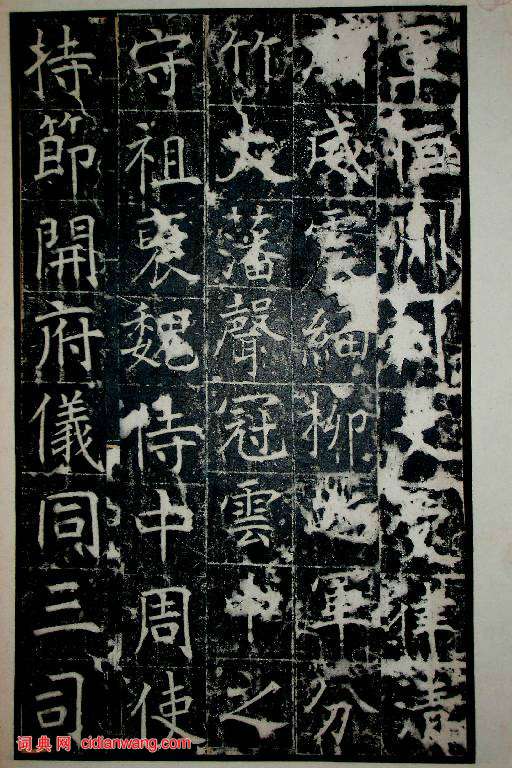 軍恒州刺史受律清
威震細柳之軍分
竹大藩聲冠雲中之
守祖裒魏侍中周使
持節開府儀同三司
词典网 cidianwang.com